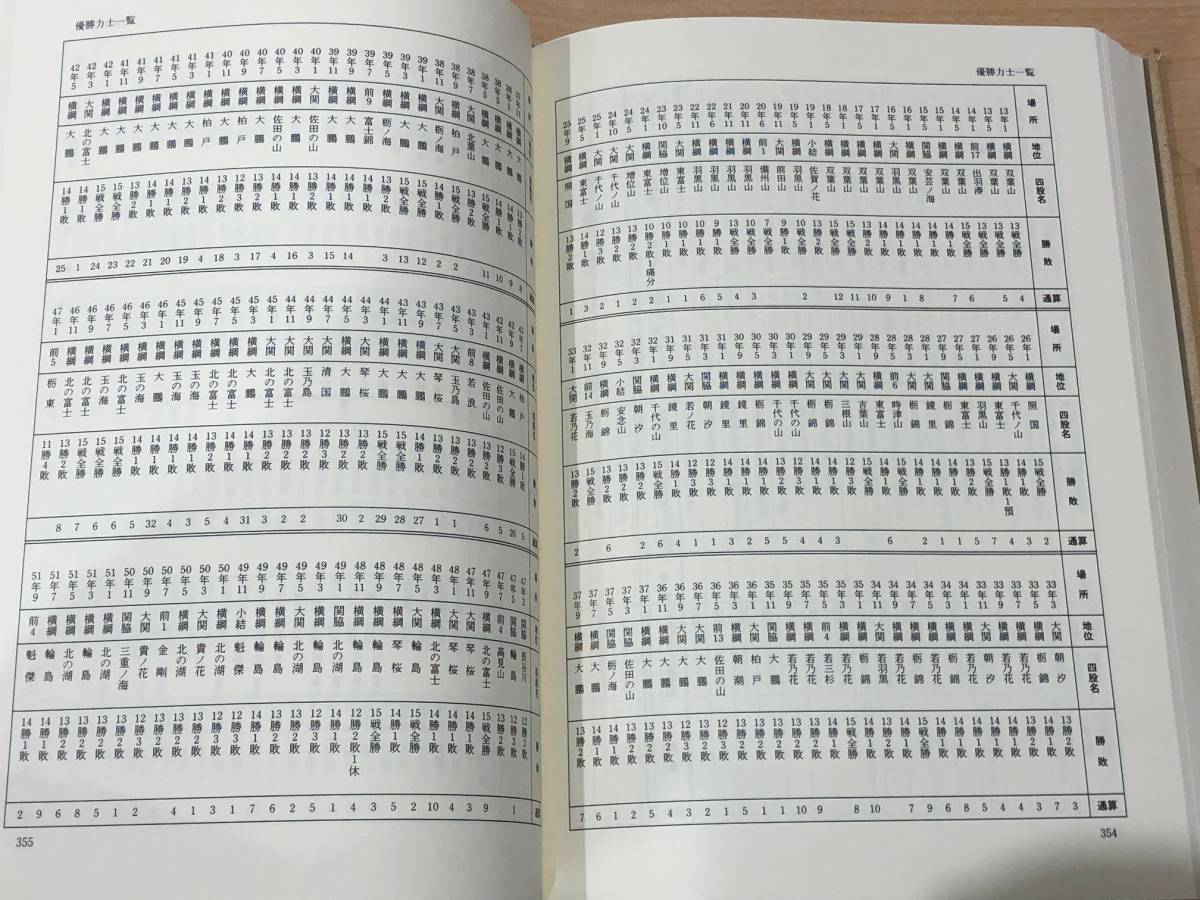 優勝力士一覧
場所 地位 四股名 勝敗 通算
13年1 横綱 双葉山 13戦全勝 4
13年5 横綱 双葉山 13戦全勝 5
14年1 前17 出羽湊 13戦全勝
14年5 横綱 双葉山 15戦全勝 6
15年1 横綱 双葉山 14勝1敗 7
15年5 関脇 安芸ノ海 14勝1敗
16年1 横綱 双葉山 14勝1敗 8
16年5 大関 羽黒山 14勝1敗 1
17年1 横綱 双葉山 14勝1敗 9
17年5 横綱 双葉山 13勝2敗 10
18年1 横綱 双葉山 15戦全勝 11
18年5 横綱 双葉山 15戦全勝 12
19年1 小結 佐賀ノ花 13勝2敗
19年5 横綱 羽黒山 10戦全勝 2
19年11 大関 前田山 9勝1敗
20年6 前1 備州山 7戦全勝
20年11 横綱 羽黒山 10戦全勝 3
21年11 横綱 羽黒山 13戦全勝 4
22年6 横綱 羽黒山 9勝1敗 5
22年11 横綱 羽黒山 10勝1敗 6
23年5 大関 東富士 10勝1敗 1
23年10 関脇 増位山 10勝1敗 1
24年1 横綱 東富士 10勝2敗1痛分 2
24年5 大関 増位山 13勝2敗 2
24年10 大関 千代ノ山 13勝2敗 1
25年1 大関 千代ノ山 12勝3敗 2
25年5 横綱 東富士 14勝1敗 3
25年9 横綱 照国 13勝2敗 1
場所 地位 四股名 勝敗 通算
26年1 横綱 照国 15戦全勝 2
26年5 大関 千代ノ山 14勝1敗 3
26年9 横綱 東富士 13勝1敗1預 4
27年1 横綱 羽黒山 15戦全勝 7
27年5 横綱 東富士 13勝2敗 5
27年9 関脇 栃錦 14勝1敗 1
28年1 大関 鏡里 14勝1敗 1
28年3 大関 栃錦 14勝1敗 2
28年5 前6 時津山 15戦全勝
28年9 横綱 東富士 14勝1敗 6
29年1 大関 吉葉山 15戦全勝
29年3 大関 三根山 12勝3敗
29年5 大関 栃錦 14勝1敗 3
29年9 大関 栃錦 14勝1敗 4
30年1 横綱 千代の山 12勝3敗 4
30年3 横綱 千代の山 13勝2敗 5
30年5 横綱 栃錦 14勝1敗 5
30年9 横綱 鏡里 14勝1敗 2
31年1 横綱 鏡里 14勝1敗 3
31年3 関脇 朝汐 12勝3敗 1
31年5 大関 若ノ花 12勝3敗 1
31年9 横綱 鏡里 14勝1敗 4
32年1 横綱 千代の山 15戦全勝 6
32年3 関脇 朝汐 13勝2敗 2
32年5 小結 安念山 13勝2敗
32年9 横綱 栃錦 13勝2敗 6
32年11 前14 玉乃海 15戦全勝
33年1 大関 若乃花 13勝2敗 2
場所 地位 四股名 勝敗 通算
33年3 大関 朝汐 13勝2敗 3
33年5 横綱 栃錦 14勝1敗 7
33年7 横綱 若乃花 13勝2敗 3
33年9 横綱 若乃花 14勝1敗 4
33年11 大関 朝汐 14勝1敗 4
34年1 横綱 若乃花 14勝1敗 5
34年3 横綱 栃錦 14勝1敗 8
34年5 横綱 若乃花 14勝1敗 6
34年7 横綱 栃錦 15戦全勝 9
34年9 横綱 若乃花 14勝1敗 7
34年11 大関 若羽黒 13勝2敗
35年1 横綱 栃錦 14勝1敗 10
35年3 横綱 若乃花 15戦全勝 8
35年5 前4 若三杉 14勝1敗
35年7 横綱 若乃花 13勝2敗 9
35年9 横綱 若乃花 13勝2敗 10
35年11 関脇 大鵬 13勝2敗 1
36年1 大関 柏戸 13勝2敗 1
36年3 横綱 朝潮 13勝2敗 5
36年5 前13 佐田の山 12勝3敗 1
36年7 大関 大鵬 13勝2敗 2
36年9 大関 大鵬 12勝3敗 3
36年11 横綱 大鵬 13勝2敗 4
37年1 横綱 大鵬 13勝2敗 5
37年3 関脇 佐田の山 13勝2敗 2
37年5 関脇 栃ノ海 14勝1敗 1
37年7 横綱 大鵬 14勝1敗 6
37年9 横綱 大鵬 13勝2敗 7
354
優勝力士一覧
37年11 横綱 大鵬 13勝2敗 8
38年1 横綱 大鵬 14勝1敗 9
38年3 横綱 大鵬 14勝1敗 10
38年5 横綱 大鵬 15戦全勝 11
38年7 大関 北葉山 13勝2敗
38年9 横綱 柏戸 15戦全勝 2
38年11 大関 栃ノ海 14勝1敗 2
39年1 横綱 大鵬 15戦全勝 12
39年3 横綱 大鵬 15戦全勝 13
39年5 横綱 栃ノ海 13勝2敗 3
39年7 前9 富士錦 14勝1敗
39年9 横綱 大鵬 14勝1敗 14
39年11 横綱 大鵬 14勝1敗 15
40年1 大関 佐田の山 13勝2敗 3
40年3 横綱 大鵬 14勝1敗 16
40年5 横綱 佐田の山 14勝1敗 4
40年7 横綱 大鵬 13勝2敗 17
40年9 横綱 柏戸 12勝3敗 3
40年11 横綱 大鵬 13勝2敗 18
41年1 横綱 柏戸 14勝1敗 4
41年3 横綱 大鵬 13勝2敗 19
41年5 横綱 大鵬 14勝1敗 20
41年7 横綱 大鵬 14勝1敗 21
41年9 横綱 大鵬 13勝2敗 22
41年11 横綱 大鵬 15戦全勝 23
42年1 横綱 大鵬 15戦全勝 24
42年3 大関 北の富士 14勝1敗 1
42年5 横綱 大鵬 14勝1敗 25
42年7 横綱 柏戸 14勝1敗 5
42年9 横綱 大鵬 15戦全勝 26
42年11 横綱 佐田の山 12勝3敗 5
43年1 横綱 佐田の山 13勝2敗 6
43年3 前8 若浪 13勝2敗
43年5 大関 玉乃島 13勝2敗 1
43年7 大関 琴桜 13勝2敗 1
43年9 横綱 大鵬 14勝1敗 27
43年11 横綱 大鵬 15戦全勝 28
44年1 横綱 大鵬 15戦全勝 29
44年3 大関 琴桜 13勝2敗 2
44年5 横綱 大鵬 13勝2敗 30
44年7 大関 清国 12勝3敗
44年9 大関 玉乃島 13勝2敗 2
44年11 大関 北の富士 13勝2敗 2
45年1 大関 北の富士 13勝2敗 3
45年3 横綱 大鵬 14勝1敗 31
45年5 横綱 北の富士 14勝1敗 4
45年7 横綱 北の富士 13勝2敗 5
45年9 横綱 玉の海 14勝1敗 3
45年11 横綱 玉の海 14勝1敗 4
46年1 横綱 大鵬 14勝1敗 32
46年3 横綱 玉の海 14勝1敗 5
46年5 横綱 北の富士 15戦全勝 6
46年7 横綱 玉の海 15戦全勝 6
46年9 横綱 北の富士 15戦全勝 7
46年11 横綱 北の富士 13勝2敗 8
47年1 前5 栃東 11勝4敗
47年3 関脇 長谷川 12勝3敗
47年5 関脇 輪島 12勝3敗 1
47年7 前4 高見山 13勝2敗
47年9 横綱 北の富士 15戦全勝 9
47年11 大関 琴桜 14勝1敗 3
48年1 大関 琴桜 14勝1敗 4
48年3 横綱 北の富士 14勝1敗 10
48年5 大関 輪島 15戦全勝 2
48年7 横綱 琴桜 14勝1敗 5
48年9 横綱 輪島 15戦全勝 3
48年11 横綱 輪島 12勝2敗1休 4
49年1 関脇 北の湖 14勝1敗 1
49年3 横綱 輪島 12勝3敗 5
49年5 大関 北の湖 13勝2敗 2
49年7 横綱 輪島 13勝2敗 6
49年9 横綱 輪島 14勝1敗 7
49年11 小結 魁傑 12勝3敗 1
50年1 横綱 北の湖 12勝3敗 3
50年3 大関 貴ノ花 13勝2敗 1
50年5 横綱 北の湖 13勝2敗 4
50年7 前1 金剛 13勝2敗
50年9 大関 貴ノ花 12勝3敗 2
50年11 関脇 三重ノ海 13勝2敗 1
51年1 横綱 北の湖 13勝2敗 5
51年3 横綱 輪島 13勝2敗 8
51年5 横綱 北の湖 13勝2敗 6
51年7 横綱 輪島 14勝1敗 9
51年9 前4 魁傑 14勝1敗 2
355